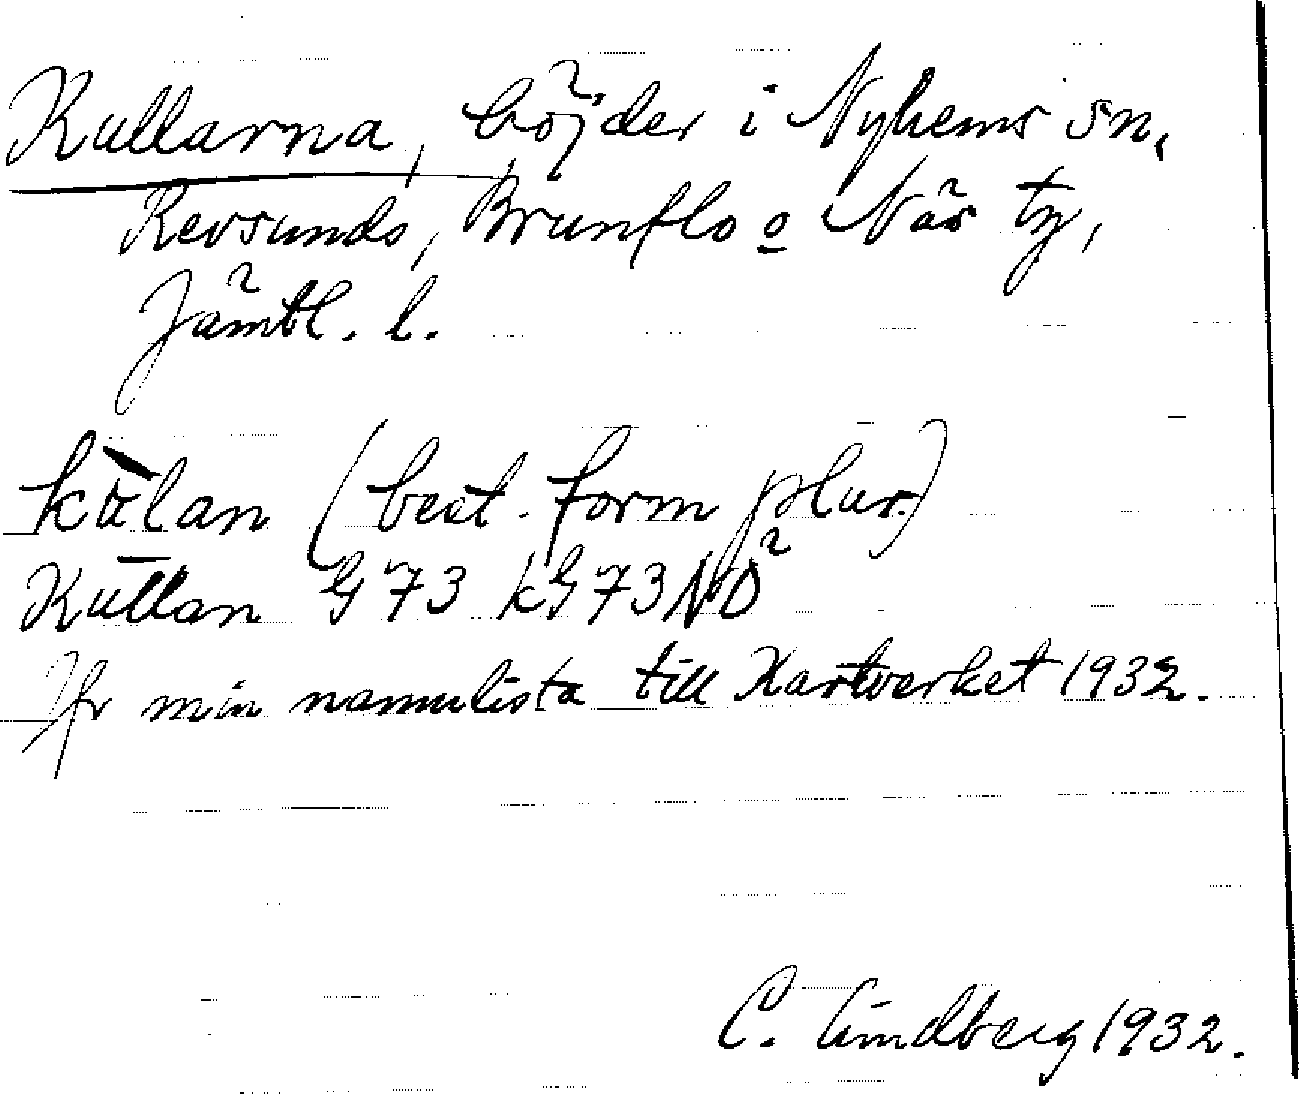 Kullarna, höjder i Nyhems sn,
Revsunds, Brunflo o Näs tg,
Jämtl. l.
kùlan (best. form plur.)
Kullan G 73 kG 73 NO
Jfr min namnlista till Kartverket 1932.
C. Lindberg 1932.